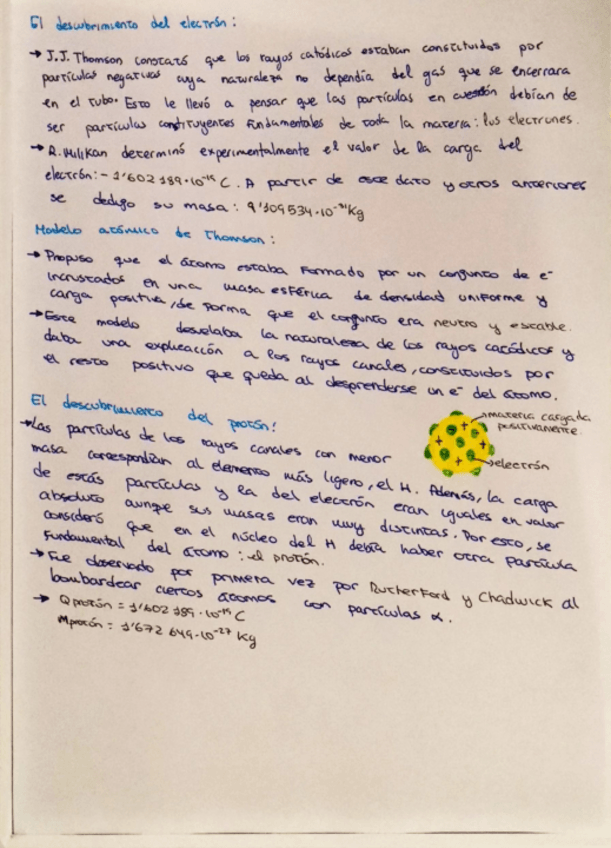 El descubrimiento del electrón:
→ J.J. Thomson constató que los rayos catódicos estaban constituidos por
partículas negativas cuya naturaleza no dependía del gas que se encerrara
en el tubo. Esto le llevó a pensar que las partículas en cuestión debían de
ser partículas constituyentes fundamentales de toda la materia: los electrones.
→ R. Milikan determinó experimentalmente el valor de la carga del
electrón: - 1'602 189·10⁻¹⁹ C. A partir de este dato y otros anteriores
se dedujo su masa: 9'109534·10⁻³¹ Kg
Modelo atómico de Thomson:
→ Propuso que el átomo estaba formado por un conjunto de e⁻
incrustados en una masa esférica de densidad uniforme y
carga positiva, de forma que el conjunto era neutro y estable.
→ Este modelo desvelaba la naturaleza de los rayos catódicos y
daba una explicación a los rayos canales, constituidos por
el resto positivo que queda al desprenderse un e⁻ del átomo.
El descubrimiento del protón:
→ Las partículas de los rayos canales con menor
masa correspondían al elemento más ligero, el H. Además, la carga
de estás partículas y la del electrón eran iguales en valor
absoluto aunque sus masas eran muy distintas. Por esto, se
consideró que en el núcleo del H debía haber otra partícula
fundamental del átomo: el protón.
materia cargada
positivamente.
electrón
→ Fue observado por primera vez por Rutherford y Chadwick al
bombardear ciertos átomos con partículas α.
→ Q protón = 1'602 189 · 10⁻¹⁹ C
M protón = 1'672 649·10⁻²⁷ Kg